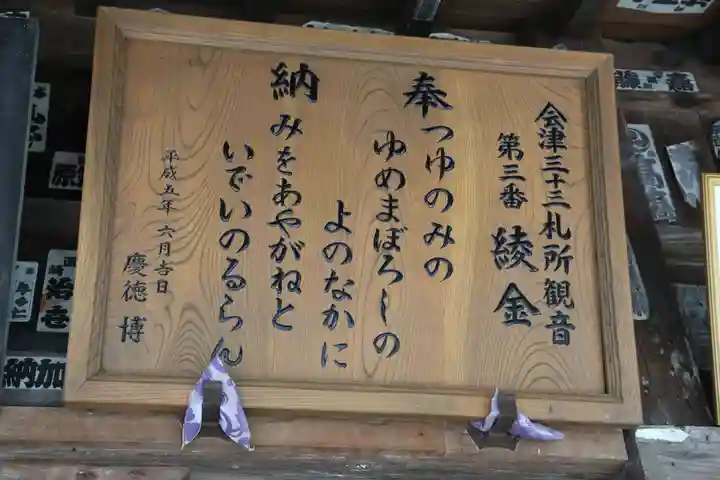 会津三十三札所観音
第三番 綾金
奉
つゆのみの
ゆめまぼろしの
よのなかに
納
みをあやがねと
いでいのるらん
平成五年 六月吉日
慶徳 博
納加